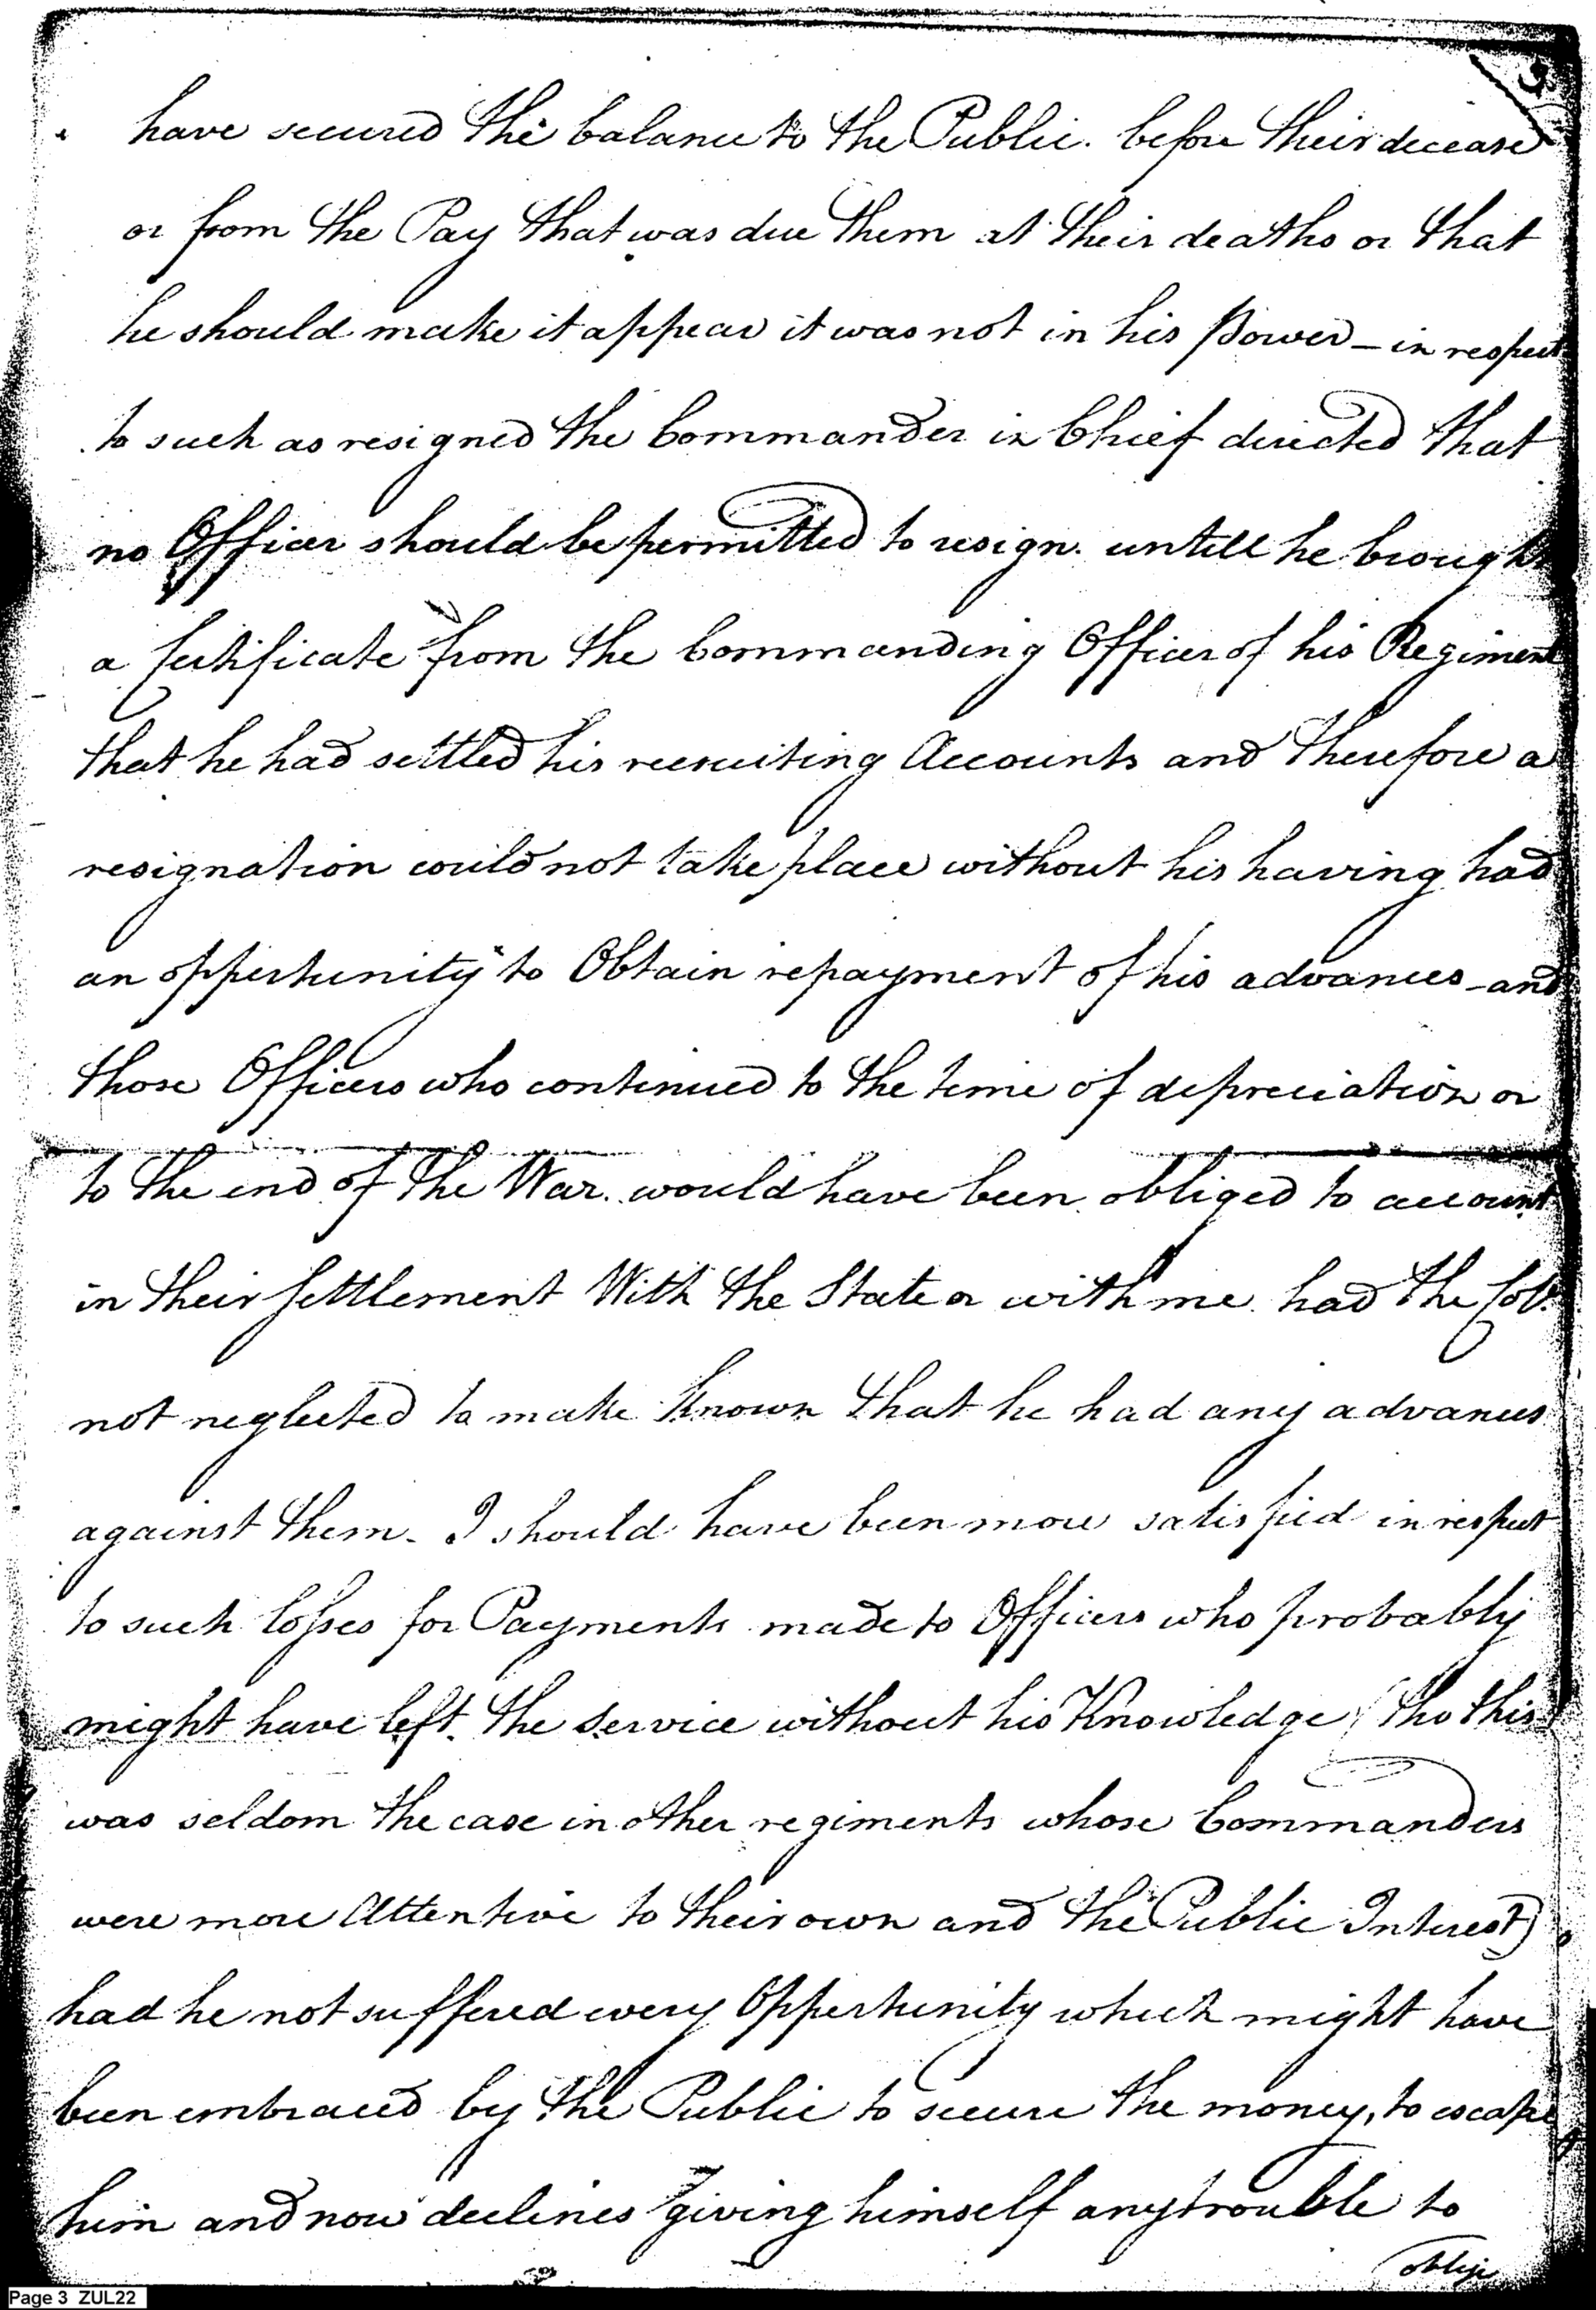 3
have secured the balance to the Public. before their decease
or from the Pay that was due them at their deaths or that
he should make it appear it was not in his Power – in respect
to such as resigned the Commander in Chief directed that
no Officer should be permitted to resign. untill he brought
a Certificate from the Commanding Officer of his Regiment
that he had settled his recruiting Accounts and therefore a
resignation could not take place without his having had
an oppertunity to Obtain repayment of his advances – and
those Officers who continued to the time of depreciation or
to the end of the War. would have been obliged to account
in their Settlement With the State or with me. had the Col.
not neglected to make known that he had any advances
against them. I should have been more satisfied in respect
to such losses for Payments made to Officers who probably
might have left. the service without his Knowledge (tho this
was seldom the case in other regiments whose Commanders
were more Attentive to their own and the Public Interest)
had he not suffered every Oppertunity which might have
been embraced by the Public to secure the money, to escape
him and now declines giving himself any trouble to
oblige
Page 3 ZUL22